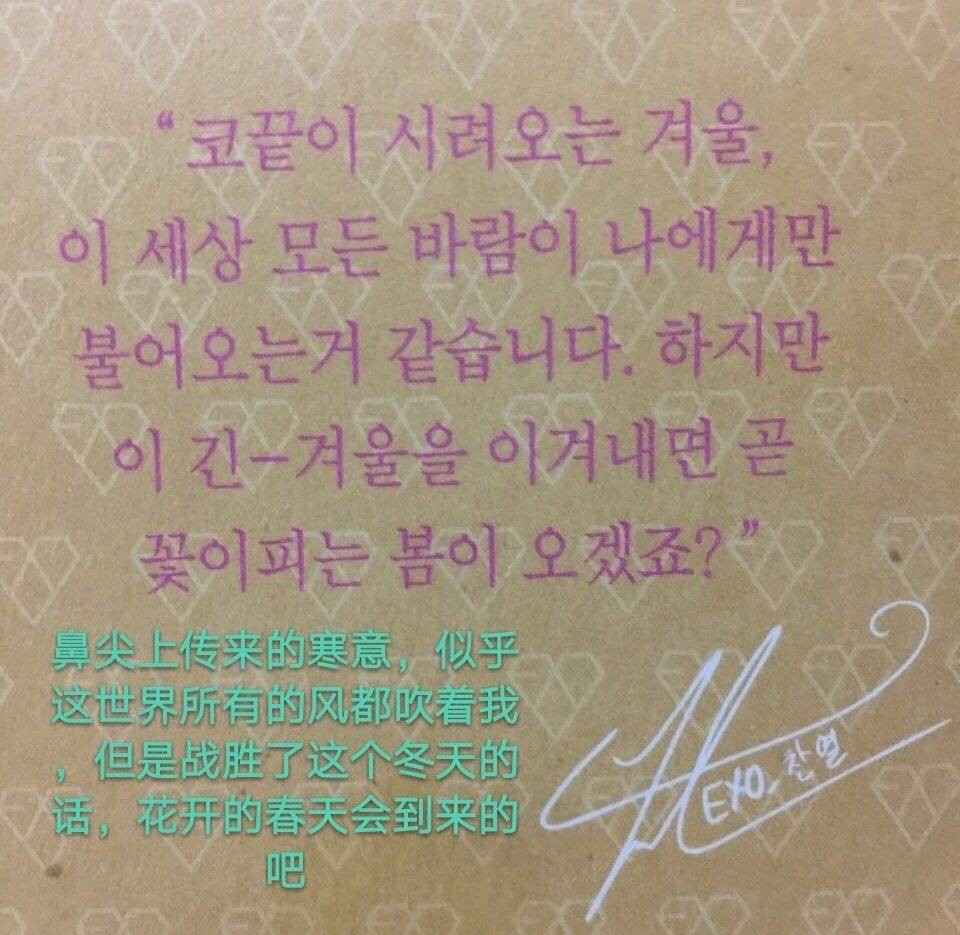 “코끝이 시려오는 겨울,
이 세상 모든 바람이 나에게만
불어오는거 같습니다. 하지만
이 긴-겨울을 이겨내면 곧
꽃이피는 봄이 오겠죠?”
鼻尖上传来的寒意，似乎
这世界所有的风都吹着我
，但是战胜了这个冬天的
话，花开的春天会到来的
吧
EXO_찬열